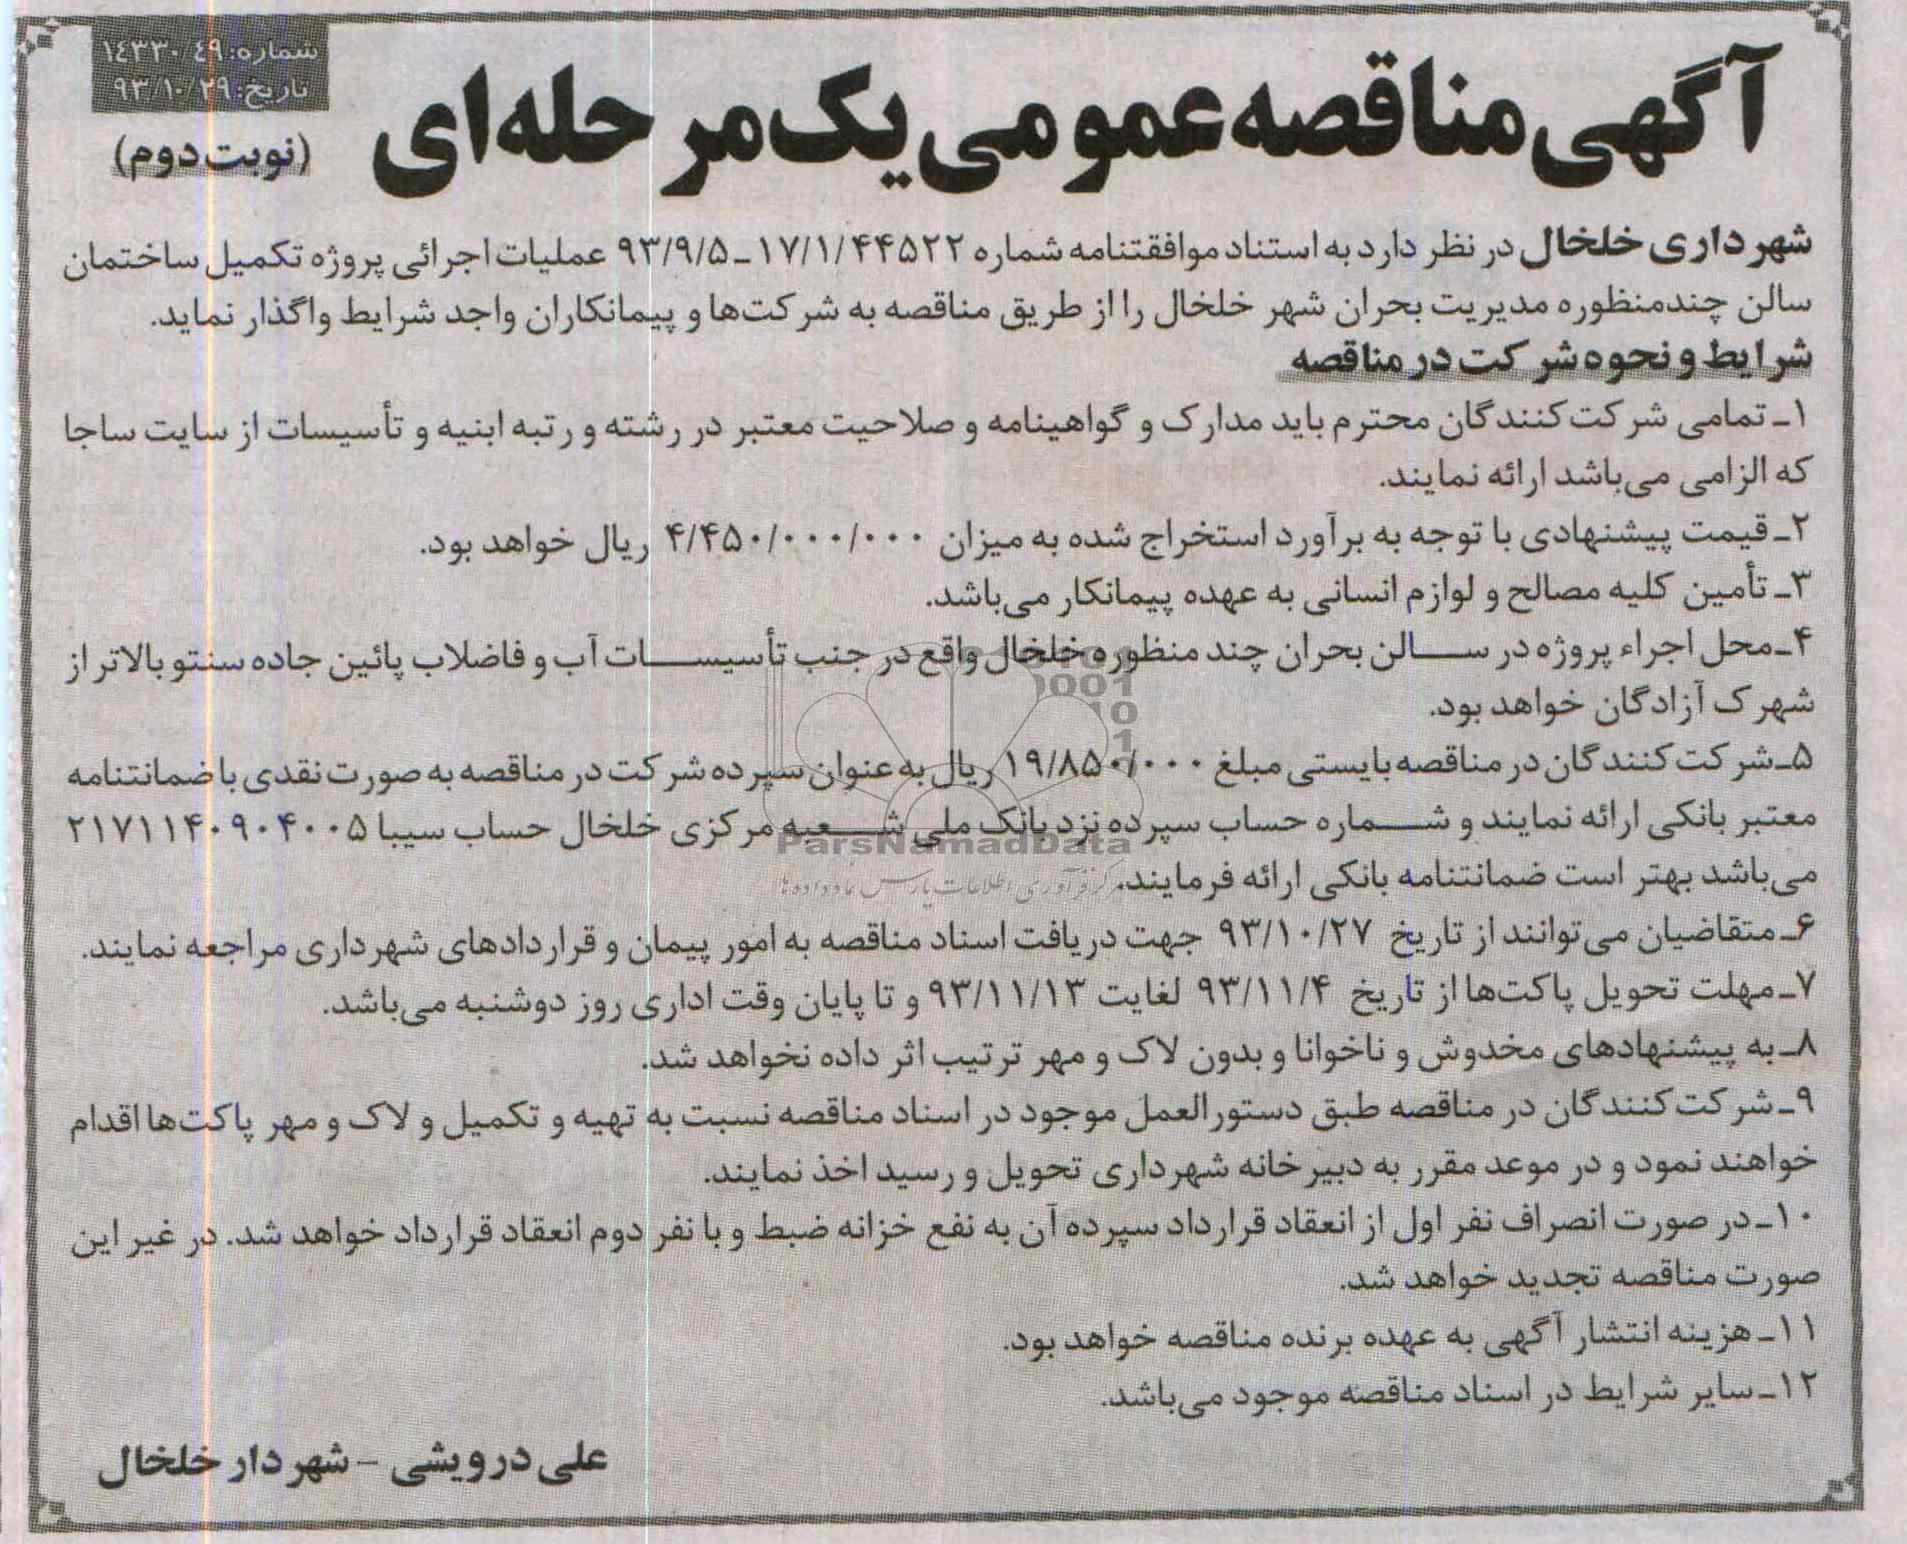 شماره: ۱۴۳۳۰/۴۹
تاریخ: ۹۳/۱۰/۲۹
آگهی مناقصه عمومی یک مرحله‌ای
(نوبت دوم)
شهرداری خلخال در نظر دارد به استناد موافقتنامه شماره ۱۷/۱/۴۴۵۲۲ ـ ۹۳/۹/۵ عملیات اجرائی پروژه تکمیل ساختمان
سالن چندمنظوره مدیریت بحران شهر خلخال را از طریق مناقصه به شرکت‌ها و پیمانکاران واجد شرایط واگذار نماید.
شرایط و نحوه شرکت در مناقصه
۱ـ تمامی شرکت‌کنندگان محترم باید مدارک و گواهینامه و صلاحیت معتبر در رشته و رتبه ابنیه و تأسیسات از سایت ساجا
که الزامی می‌باشد ارائه نمایند.
۲ـ قیمت پیشنهادی با توجه به برآورد استخراج شده به میزان ۴/۴۵۰/۰۰۰/۰۰۰ ریال خواهد بود.
۳ـ تأمین کلیه مصالح و لوازم انسانی به عهده پیمانکار می‌باشد.
۴ـ محل اجراء پروژه در سالن بحران چند منظوره خلخال واقع در جنب تأسیسات آب و فاضلاب پائین جاده سنتو بالاتر از
شهرک آزادگان خواهد بود.
۵ـ شرکت‌کنندگان در مناقصه بایستی مبلغ ۱۹/۸۵۰/۰۰۰ ریال به عنوان سپرده شرکت در مناقصه به صورت نقدی با ضمانتنامه
معتبر بانکی ارائه نمایند و شماره حساب سپرده نزد بانک ملی شعبه مرکزی خلخال حساب سیبا ۲۱۷۱۱۴۰۹۰۴۰۰۵
می‌باشد بهتر است ضمانتنامه بانکی ارائه فرمایند.
۶ـ متقاضیان می‌توانند از تاریخ ۹۳/۱۰/۲۷ جهت دریافت اسناد مناقصه به امور پیمان و قراردادهای شهرداری مراجعه نمایند.
۷ـ مهلت تحویل پاکت‌ها از تاریخ ۹۳/۱۱/۴ لغایت ۹۳/۱۱/۱۳ و تا پایان وقت اداری روز دوشنبه می‌باشد.
۸ـ به پیشنهادهای مخدوش و ناخوانا و بدون لاک و مهر ترتیب اثر داده نخواهد شد.
۹ـ شرکت‌کنندگان در مناقصه طبق دستورالعمل موجود در اسناد مناقصه نسبت به تهیه و تکمیل و لاک و مهر پاکت‌ها اقدام
خواهند نمود و در موعد مقرر به دبیرخانه شهرداری تحویل و رسید اخذ نمایند.
۱۰ـ در صورت انصراف نفر اول از انعقاد قرارداد سپرده آن به نفع خزانه ضبط و با نفر دوم انعقاد قرارداد خواهد شد. در غیر این
صورت مناقصه تجدید خواهد شد.
۱۱ـ هزینه انتشار آگهی به عهده برنده مناقصه خواهد بود.
۱۲ـ سایر شرایط در اسناد مناقصه موجود می‌باشد.
علی درویشی - شهردار خلخال
ParsNamadData
مرکز فرآوری اطلاعات پارس نماد داده‌ها